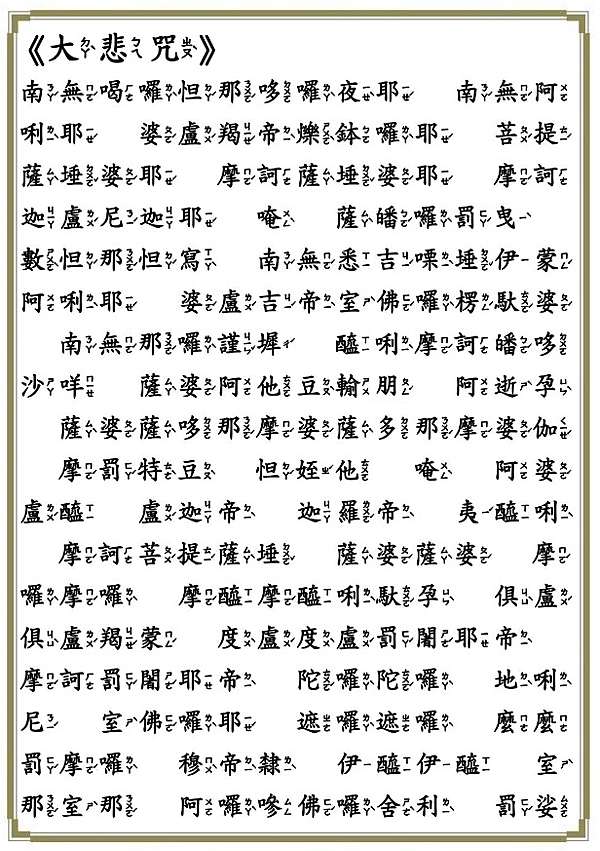 《大悲咒》
南無喝囉怛那哆囉夜耶　南無阿
唎耶　婆盧羯帝爍鉢囉耶　菩提
薩埵婆耶　摩訶薩埵婆耶　摩訶
迦盧尼迦耶　唵　薩皤囉罰曳
數怛那怛寫　南無悉吉嘌埵伊蒙
阿唎耶　婆盧吉帝室佛囉楞馱婆
南無那囉謹墀　醯唎摩訶皤哆
沙咩　薩婆阿他豆輸朋　阿逝孕
薩婆薩哆那摩婆薩多那摩婆伽
摩罰特豆　怛姪他　唵　阿婆
盧醯　盧迦帝　迦羅帝　夷醯唎
摩訶菩提薩埵　薩婆薩婆　摩
囉摩囉　摩醯摩醯唎馱孕　俱盧
俱盧羯蒙　度盧度盧罰闍耶帝
摩訶罰闍耶帝　陀囉陀囉　地唎
尼　室佛囉耶　遮囉遮囉　麼麼
罰摩囉　穆帝隸　伊醯伊醯　室
那室那　阿囉嘇佛囉舍利　罰娑